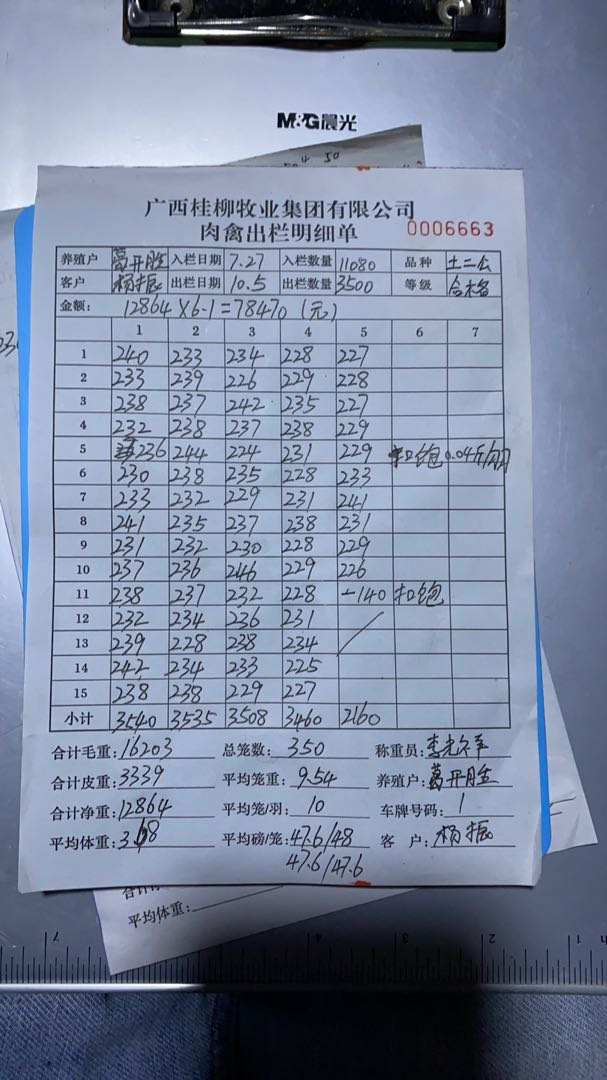 M&G晨光
4 50
广西桂柳牧业集团有限公司
肉禽出栏明细单 0006663
养殖户 葛开胜 入栏日期 7.27 入栏数量 11080 品种 土二公
客户 杨振 出栏日期 10.5 出栏数量 3500 等级 合格
金额: 12864×6.1=78470(元)
1 2 3 4 5 6 7
1 240 233 234 228 227
2 233 239 226 229 228
3 238 237 242 235 227
4 232 238 237 238 229
5 236 244 224 231 229 扣饱 0.04斤/羽
6 230 238 235 228 233
7 233 232 229 231 241
8 241 235 237 238 231
9 231 232 230 228 229
10 237 236 246 229 226
11 238 237 232 228 -140 扣饱
12 232 234 236 231
13 239 228 238 234
14 242 234 233 225
15 238 238 229 227
小计 3540 3535 3508 3460 2160
合计毛重: 16203 总笼数: 350 称重员:
合计皮重: 3339 平均笼重: 9.54 养殖户: 葛开胜
合计净重: 12864 平均笼/羽: 10 车牌号码: 1
平均体重: 3.68 平均磅/笼: 47.6/48 客户: 杨振
47.6/47.6
合计
平均体重:
7 6 5 4 3 2 1